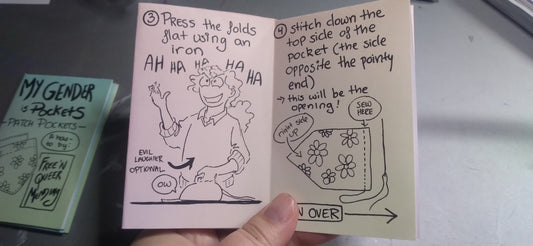 MY GENDER
is POCKETS
- PATCH POCKETS -
A HOW-
TO BY:
FREE'N
QUEER
MENDING
③ PRESS the folds
flat using an
iron
AH HA HA HA
HA
EVIL
LAUGHTER
OPTIONAL
OW
④ stitch down the
top side of the
pocket (the side
opposite the pointy
end)
→ this will be the
opening!
SEW
HERE
right side
up
N OVER